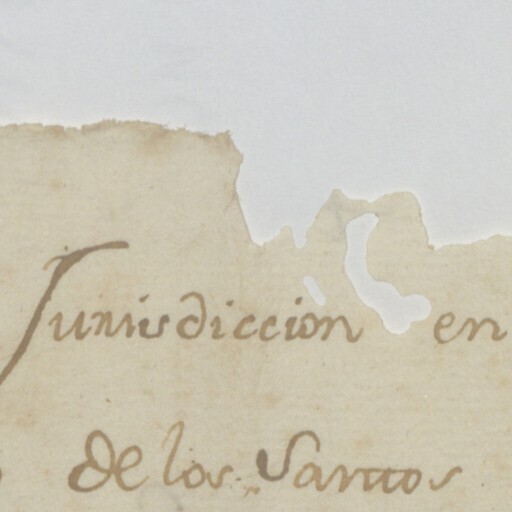 Jurisdiccion en
de los Santos